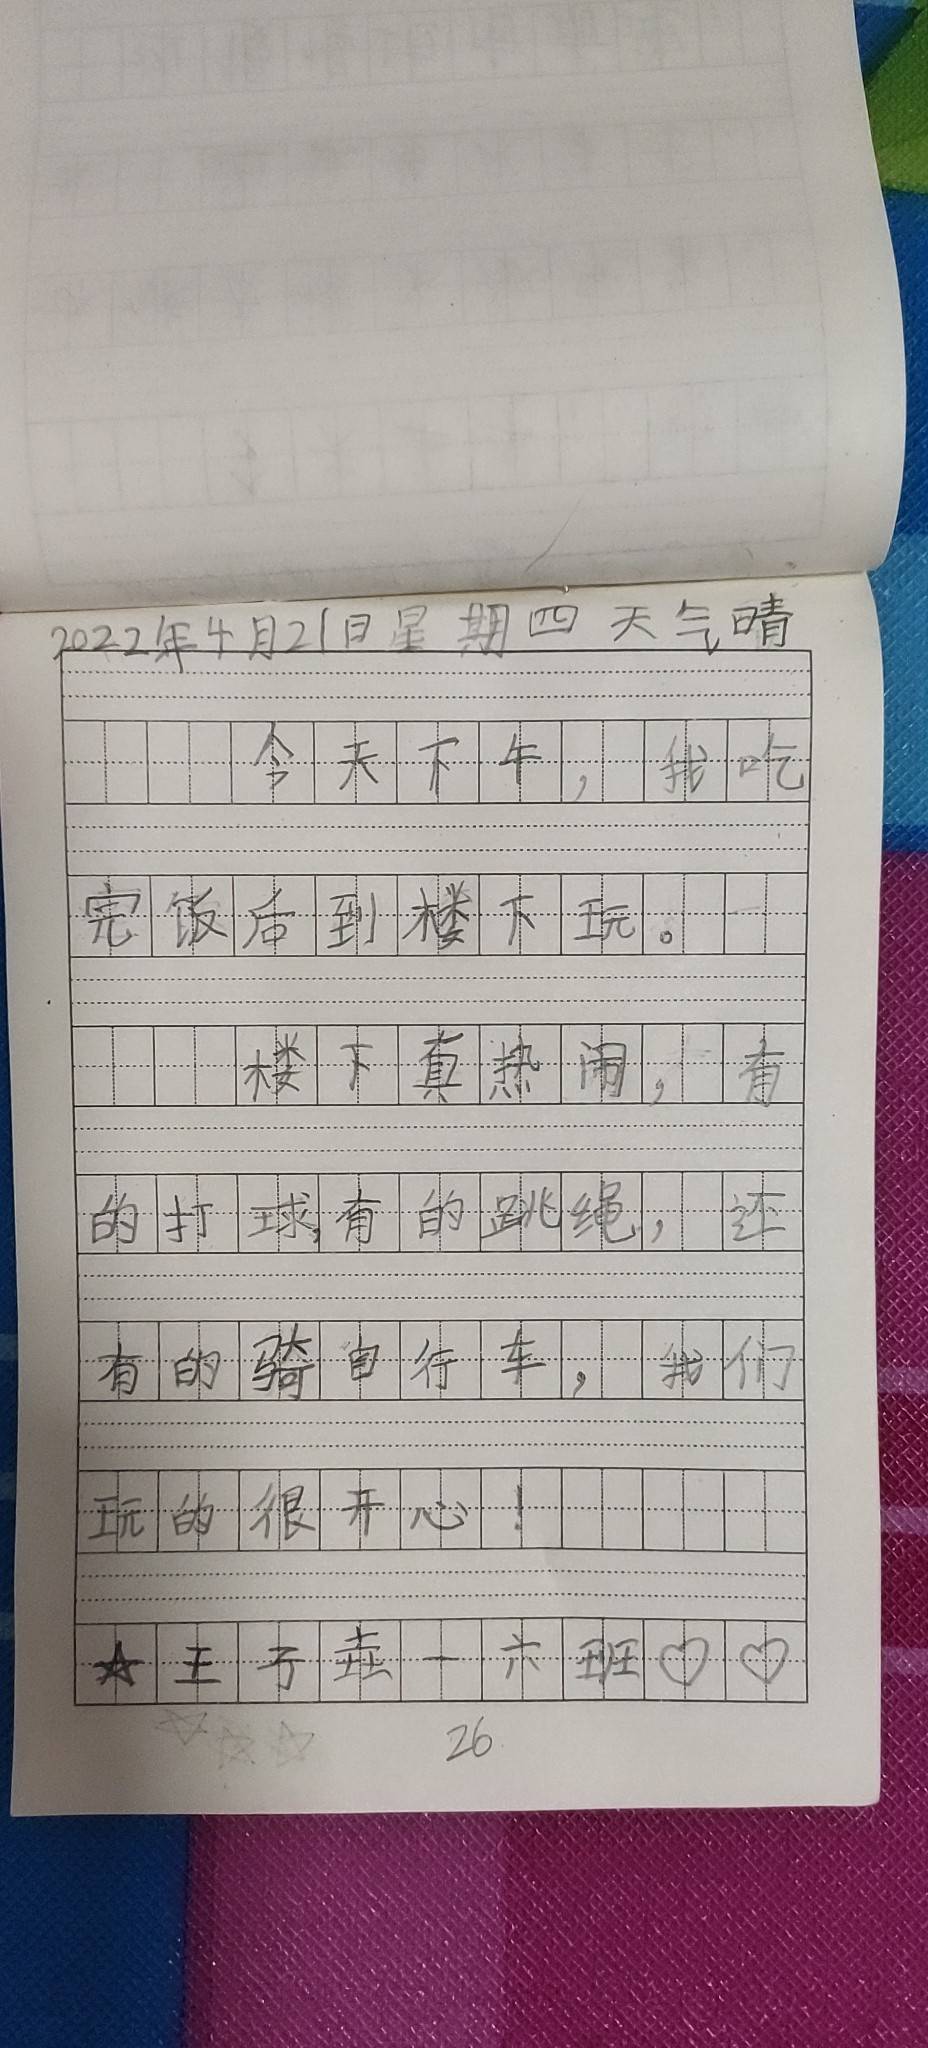 2022年4月21日星期四 天气晴
今天下午，我吃
完饭后到楼下玩。
楼下真热闹，有
的打球，有的跳绳，还
有的骑自行车，我们
玩的很开心！
☆王子垚一六班♡♡
26